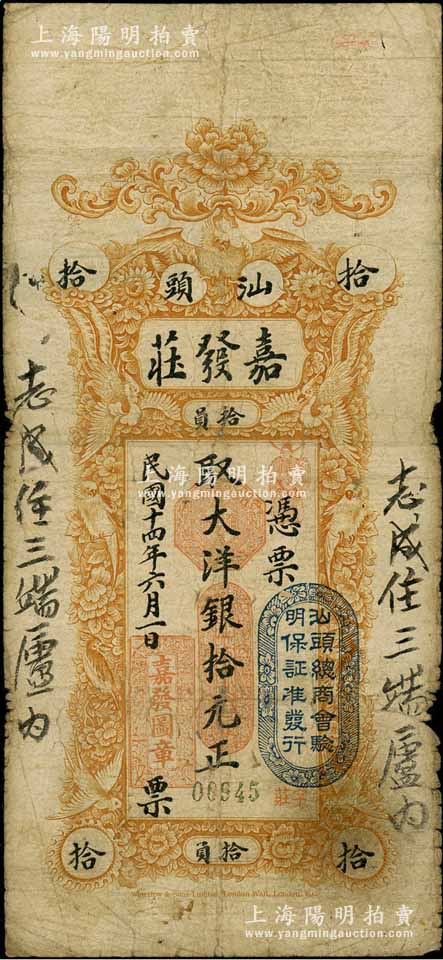 上海陽明拍賣
www.yangmingauction.com
上海陽明拍賣
www.yangmingauction.com
拾
汕頭
拾
嘉發莊
拾員
憑票
取大洋銀拾元正
民國十四年六月一日
票
汕頭總商會驗
明保証准發行
嘉發圖章
00945
莊
志成住三端廬內
志成住三端廬內
拾
拾員
拾
上海陽明拍賣
www.yangmingauction.com
上海陽明拍賣
www.yangmingauction.com